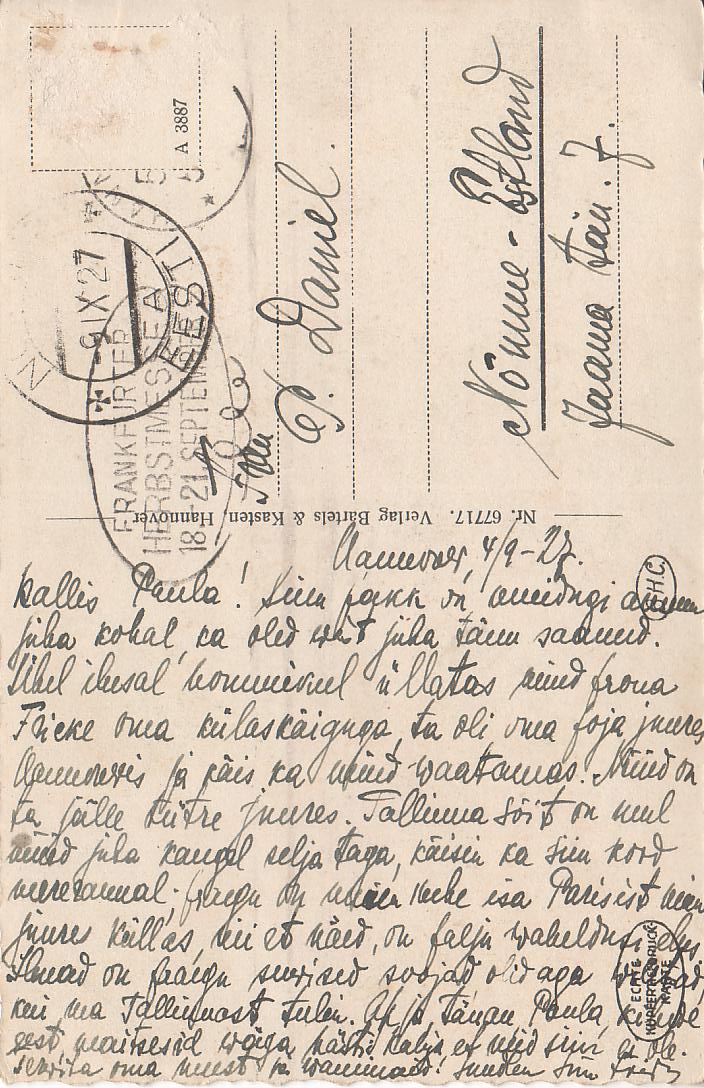 A 3887
-9 IX 27
EESTI
FRANKFURTER
HERBSTMESSE
18.-21. SEPTEMBER
Prl
P. Daniel.
Nõmme - Estland
Jaama tän. 7.
Nr. 67717. Verlag Bartels & Kasten, Hannover
Hannover, 4/9-27.
Kallis Paula! Sinu pakk on muidugi ammu
juba kohal, ka oled wist juba tänu saanud.
Ühel ilusal hommikul üllatas mind proua
Fricke oma külaskäiguga, ta oli oma poja juures
Hannoveris ja käis ka mind waatamas. Nüüd on
ta jälle tütre juures. Tallinna sõit on mul
nüüd juba kaugel selja taga, käisin ka siin kord
mererannal; praegu on minu mehe isa Parisist meie
juures küllas, nii et näed, on palju waheldust elus
Ilmad on praegu suwised soojad olid aga
kui ma Tallinnast tulin. Tänan Paula,
eest maitsesid wäga hästi kalja et neid siin ei ole.
Terwita oma meest ja wanemaid!
G.H.C.
ECHTE
KUPFERTIEFDRUCK
KARTE